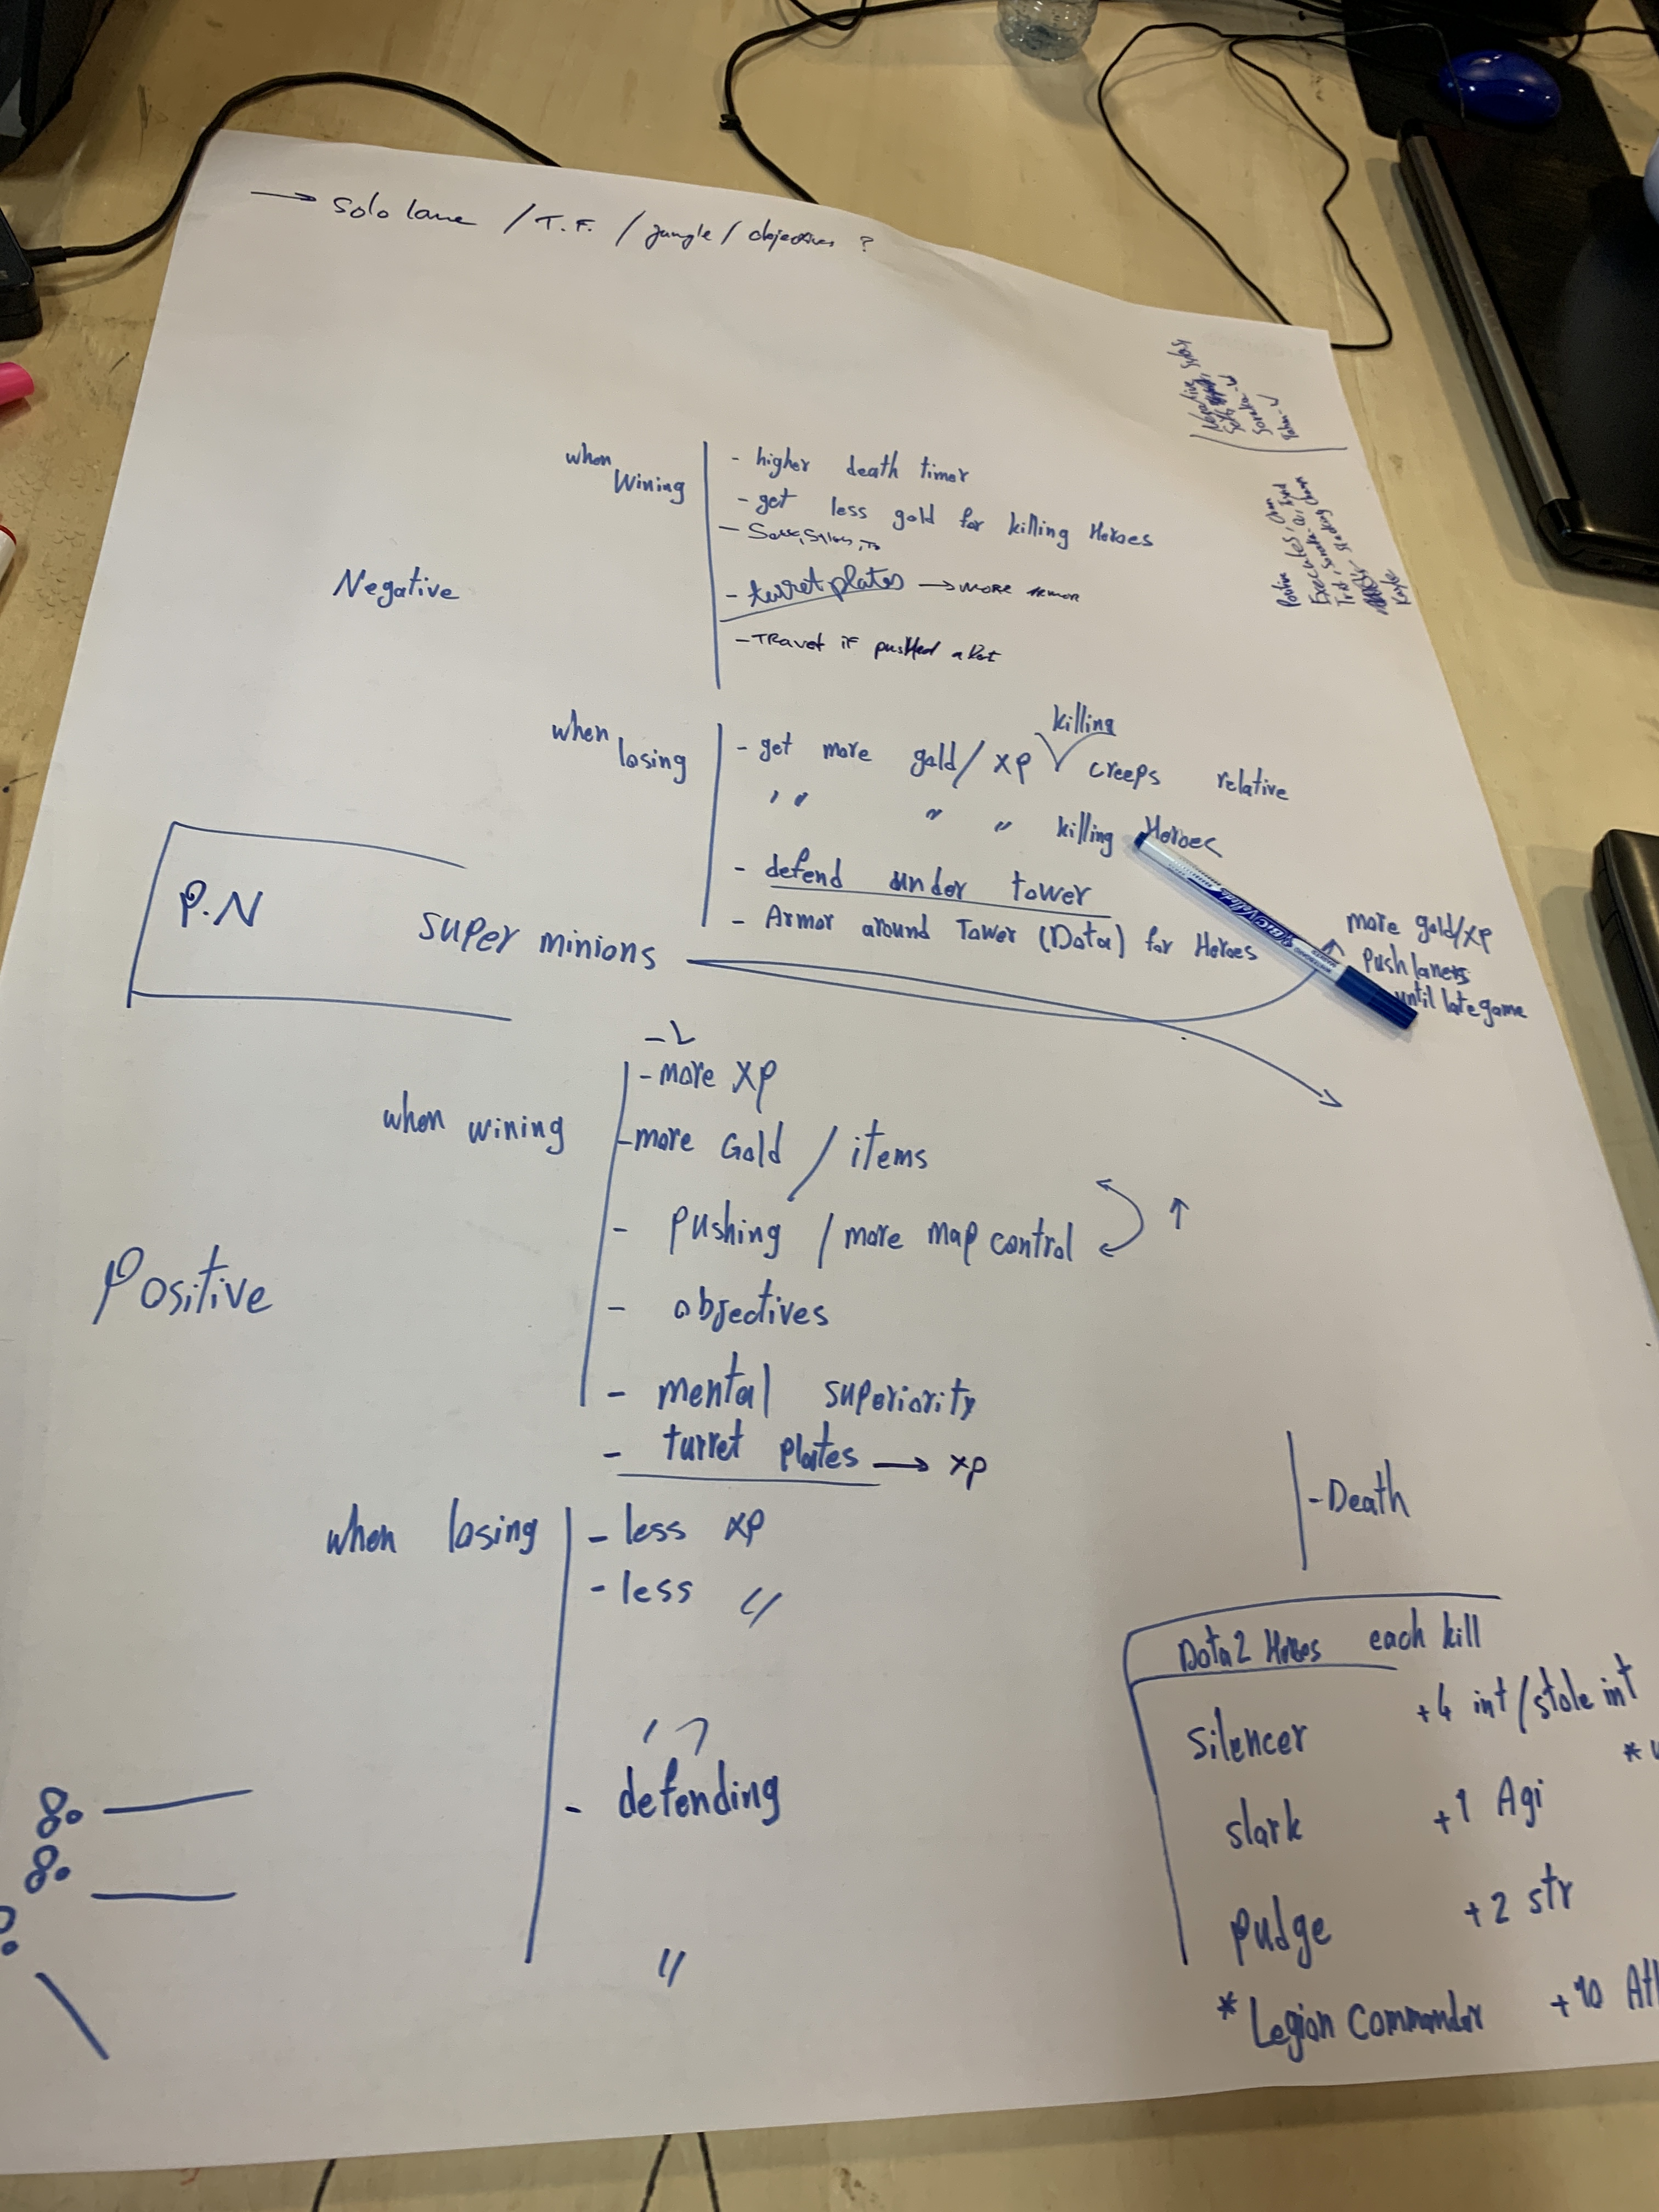 → Solo lane / T.F. / jungle / objectives ?
Negative
when
wining
- higher death timer
- get less gold for killing Heroes
- turret plates → more armor
- Travel if pushed a lot
when
losing
killing
- get more gold/xp creeps relative
" " " killing Heroes
- defend under tower
- Armor around Tower (Dota) for Heroes
P.N
super minions
more gold/xp
Push laners
until late game
Positive
when wining
- more xp
- more Gold / items
- pushing / more map control
- objectives
- mental superiority
- turret plates → xp
when losing
- less xp
- less "
- defending
"
- Death
Dota2 Heroes each kill
silencer +4 int/stole int
slark +1 Agi
pudge +2 str
* Legion Commander +10
Negative
Soraka - W
Positive
Executes
Kayle